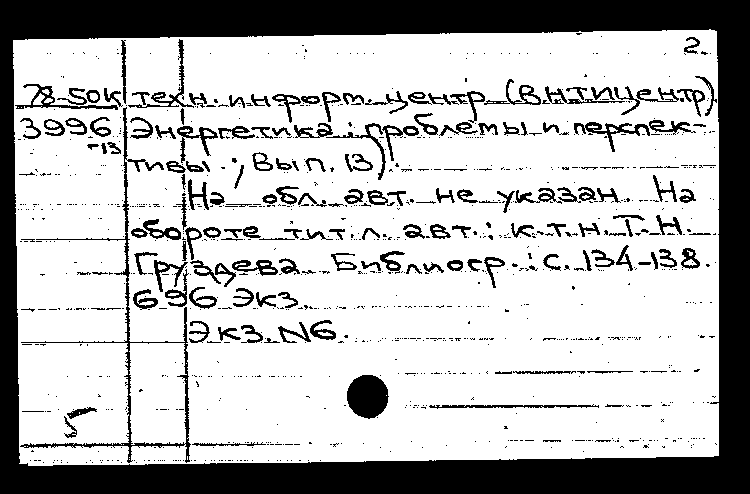 2.
78-50к техн. информ. центр (ВНТИЦентр)
3996 Энергетика: проблемы и перспек-
-13 тивы.; Вып. 13).
На обл. авт. не указан. На
обороте тит. л. авт.: к.т.н. Т.Н.
Груздева. Библиогр.: с. 134-138.
696 экз.
Экз. N6.
5